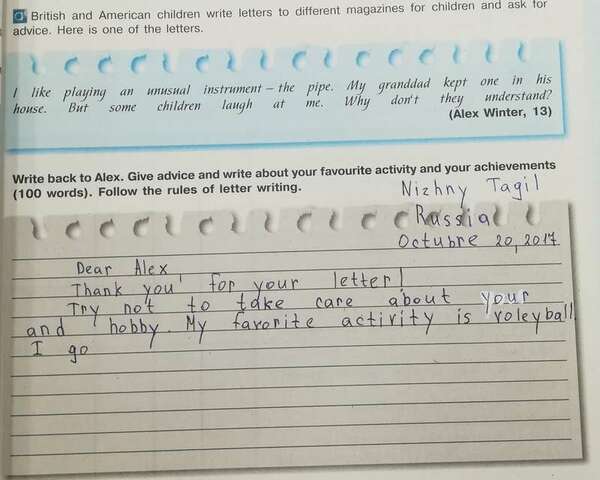 British and American children write letters to different magazines for children and ask for
advice. Here is one of the letters.
I like playing an unusual instrument – the pipe. My granddad kept one in his
house. But some children laugh at me. Why don't they understand?
(Alex Winter, 13)
Write back to Alex. Give advice and write about your favourite activity and your achievements
(100 words). Follow the rules of letter writing.
Nizhny Tagil
Russia
Octubre 20, 2017
Dear Alex
Thank you for your letter!
Try not to take care about your
and hobby. My favorite activity is voleyball.
I go